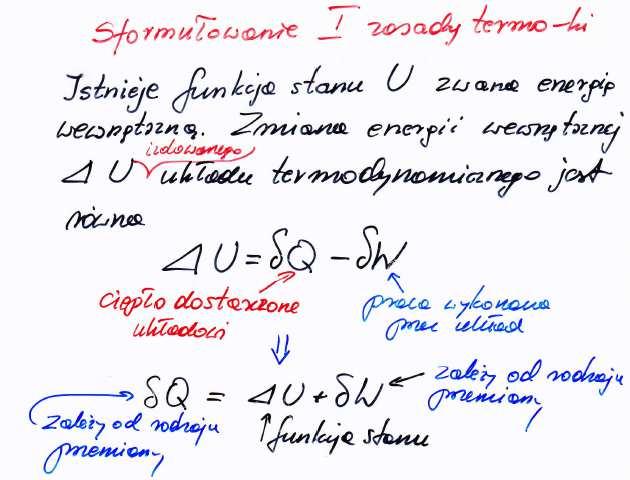 Sformułowanie I zasady termo-ki
Istnieje funkcja stanu U zwana energią
wewnętrzną. Zmiana energii wewnętrznej
izolowanego
Δ U układu termodynamicznego jest
równa
Δ U = δQ - δW
ciepło dostarczone
układowi
praca wykonana
przez układ
⇓
δQ = ΔU + δW
zależy od rodzaju
przemiany
zależy od rodzaju
przemiany
funkcja stanu